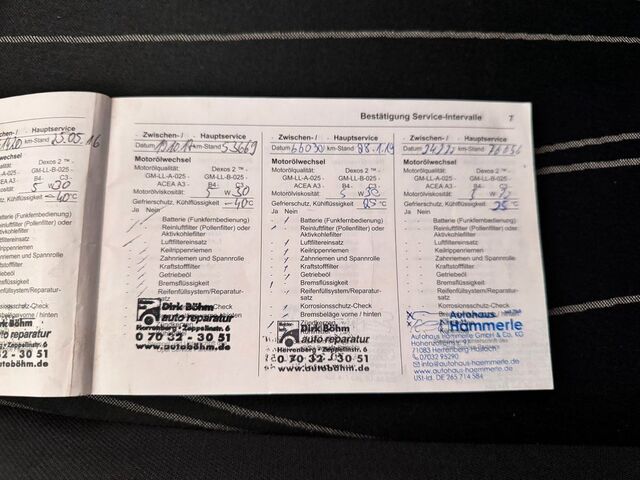 Bestätigung Service-Intervalle 7
Hauptservice
km-Stand 25.05.16
Dexos 2 ™ -
GM-LL-B-025 -
B4- C3-
5 W30
Kühlflüssigkeit -40°C
Batterie (Funkfernbedienung)
Reinluftfilter (Pollenfilter) oder
Aktivkohlefilter
Luftfiltereinsatz
Keilrippenriemen
Zahnriemen und Spannrolle
Kraftstofffilter
Getriebeöl
Bremsflüssigkeit
Reifenfüllsystem/Reparatur-
satz
Korrosionsschutz-Check
Bremsbeläge vorne / hinten
Dirk Böhm
auto reparatur
Herrenberg · Zeppelinstr. 6
32 - 30 51
autoböhm.de
Zwischen-/ Hauptservice
Datum 19.10.17 km-Stand 53669
Motorölwechsel
Motorölqualität: Dexos 2 ™ -
GM-LL-A-025 - GM-LL-B-025 -
ACEA A3 - B4 - C3
Motorölviskosität: 5 W 30
Gefrierschutz, Kühlflüssigkeit -40°C
Ja Nein
Batterie (Funkfernbedienung)
Reinluftfilter (Pollenfilter) oder
Aktivkohlefilter
Luftfiltereinsatz
Keilrippenriemen
Zahnriemen und Spannrolle
Kraftstofffilter
Getriebeöl
Bremsflüssigkeit
Reifenfüllsystem/Reparatur-
satz
Korrosionsschutz-Check
Bremsbeläge vorne / hinten
Dirk Böhm
auto reparatur
Herrenberg · Zeppelinstr. 6
0 70 32 - 30 51
www.autoböhm.de
Zwischen-/ Hauptservice
Datum 66030 km-Stand 28.1.19
Motorölwechsel
Motorölqualität: Dexos 2 ™ -
GM-LL-A-025 - GM-LL-B-025 -
ACEA A3 - B4 - C3
Motorölviskosität: 5 W 30
Gefrierschutz, Kühlflüssigkeit °C
Ja Nein
Batterie (Funkfernbedienung)
Reinluftfilter (Pollenfilter) oder
Aktivkohlefilter
Luftfiltereinsatz
Keilrippenriemen
Zahnriemen und Spannrolle
Kraftstofffilter
Getriebeöl
Bremsflüssigkeit
Reifenfüllsystem/Reparatur-
satz
Korrosionsschutz-Check
Bremsbeläge vorne / hinten
Dirk Böhm
auto reparatur
Herrenberg · Zeppelinstr. 6
0 70 32 - 30 51
www.autoböhm.de
Zwischen-/ Hauptservice
Datum km-Stand
Motorölwechsel
Motorölqualität: Dexos 2 ™ -
GM-LL-A-025 - GM-LL-B-025 -
ACEA A3 - B4 - C3
Motorölviskosität: W
Gefrierschutz, Kühlflüssigkeit 25 °C
Ja Nein
Batterie (Funkfernbedienung)
Reinluftfilter (Pollenfilter) oder
Aktivkohlefilter
Luftfiltereinsatz
Keilrippenriemen
Zahnriemen und Spannrolle
Kraftstofffilter
Getriebeöl
Bremsflüssigkeit
Reifenfüllsystem/Reparatur-
satz
Korrosionsschutz-Check
Bremsbeläge vorne / hinten
Autohaus
Hämmerle
Autohaus Hämmerle GmbH & Co. KG
71083 Herrenberg-Haslach
07032 95290
info@autohaus-haemmerle.de
www.autohaus-haemmerle.de
USt-Id. DE 265 714 584